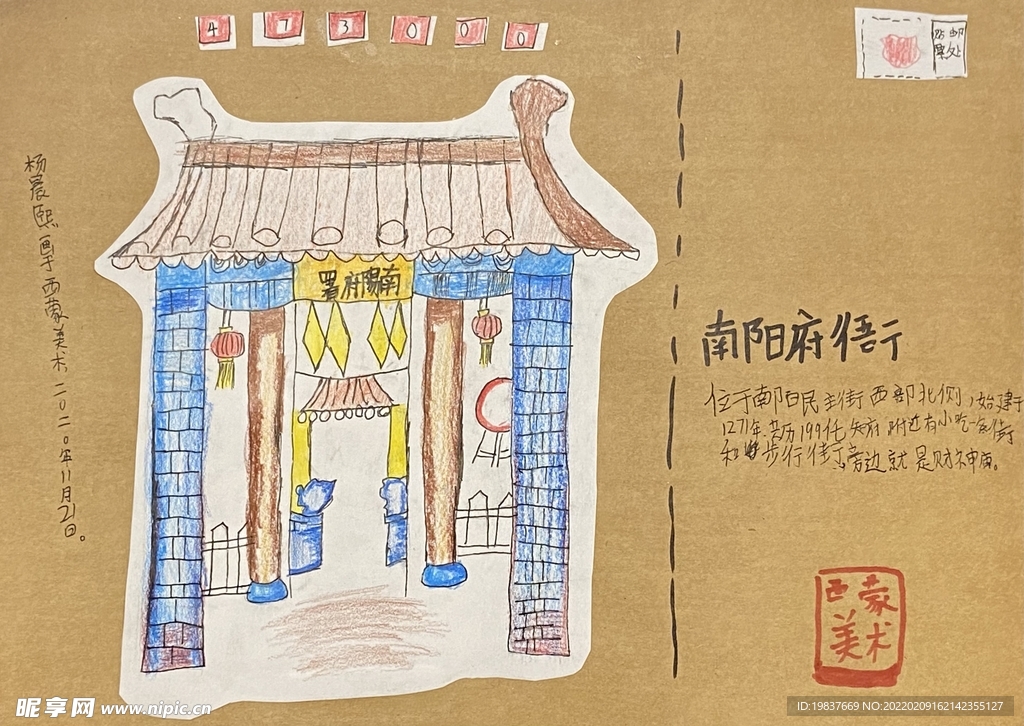 473000
邮票处
杨晨熙画于西蒙美术.二〇二〇年11月21日。
南陽府署
南阳府衙
位于南阳民主街西部北侧,始建于
1271年.共历199任知府 附近有小吃一条街
和步行街,旁边就是财神庙。
西蒙
美术
昵享网 www.nipic.cn
ID:19837669 NO:20220209162142355127